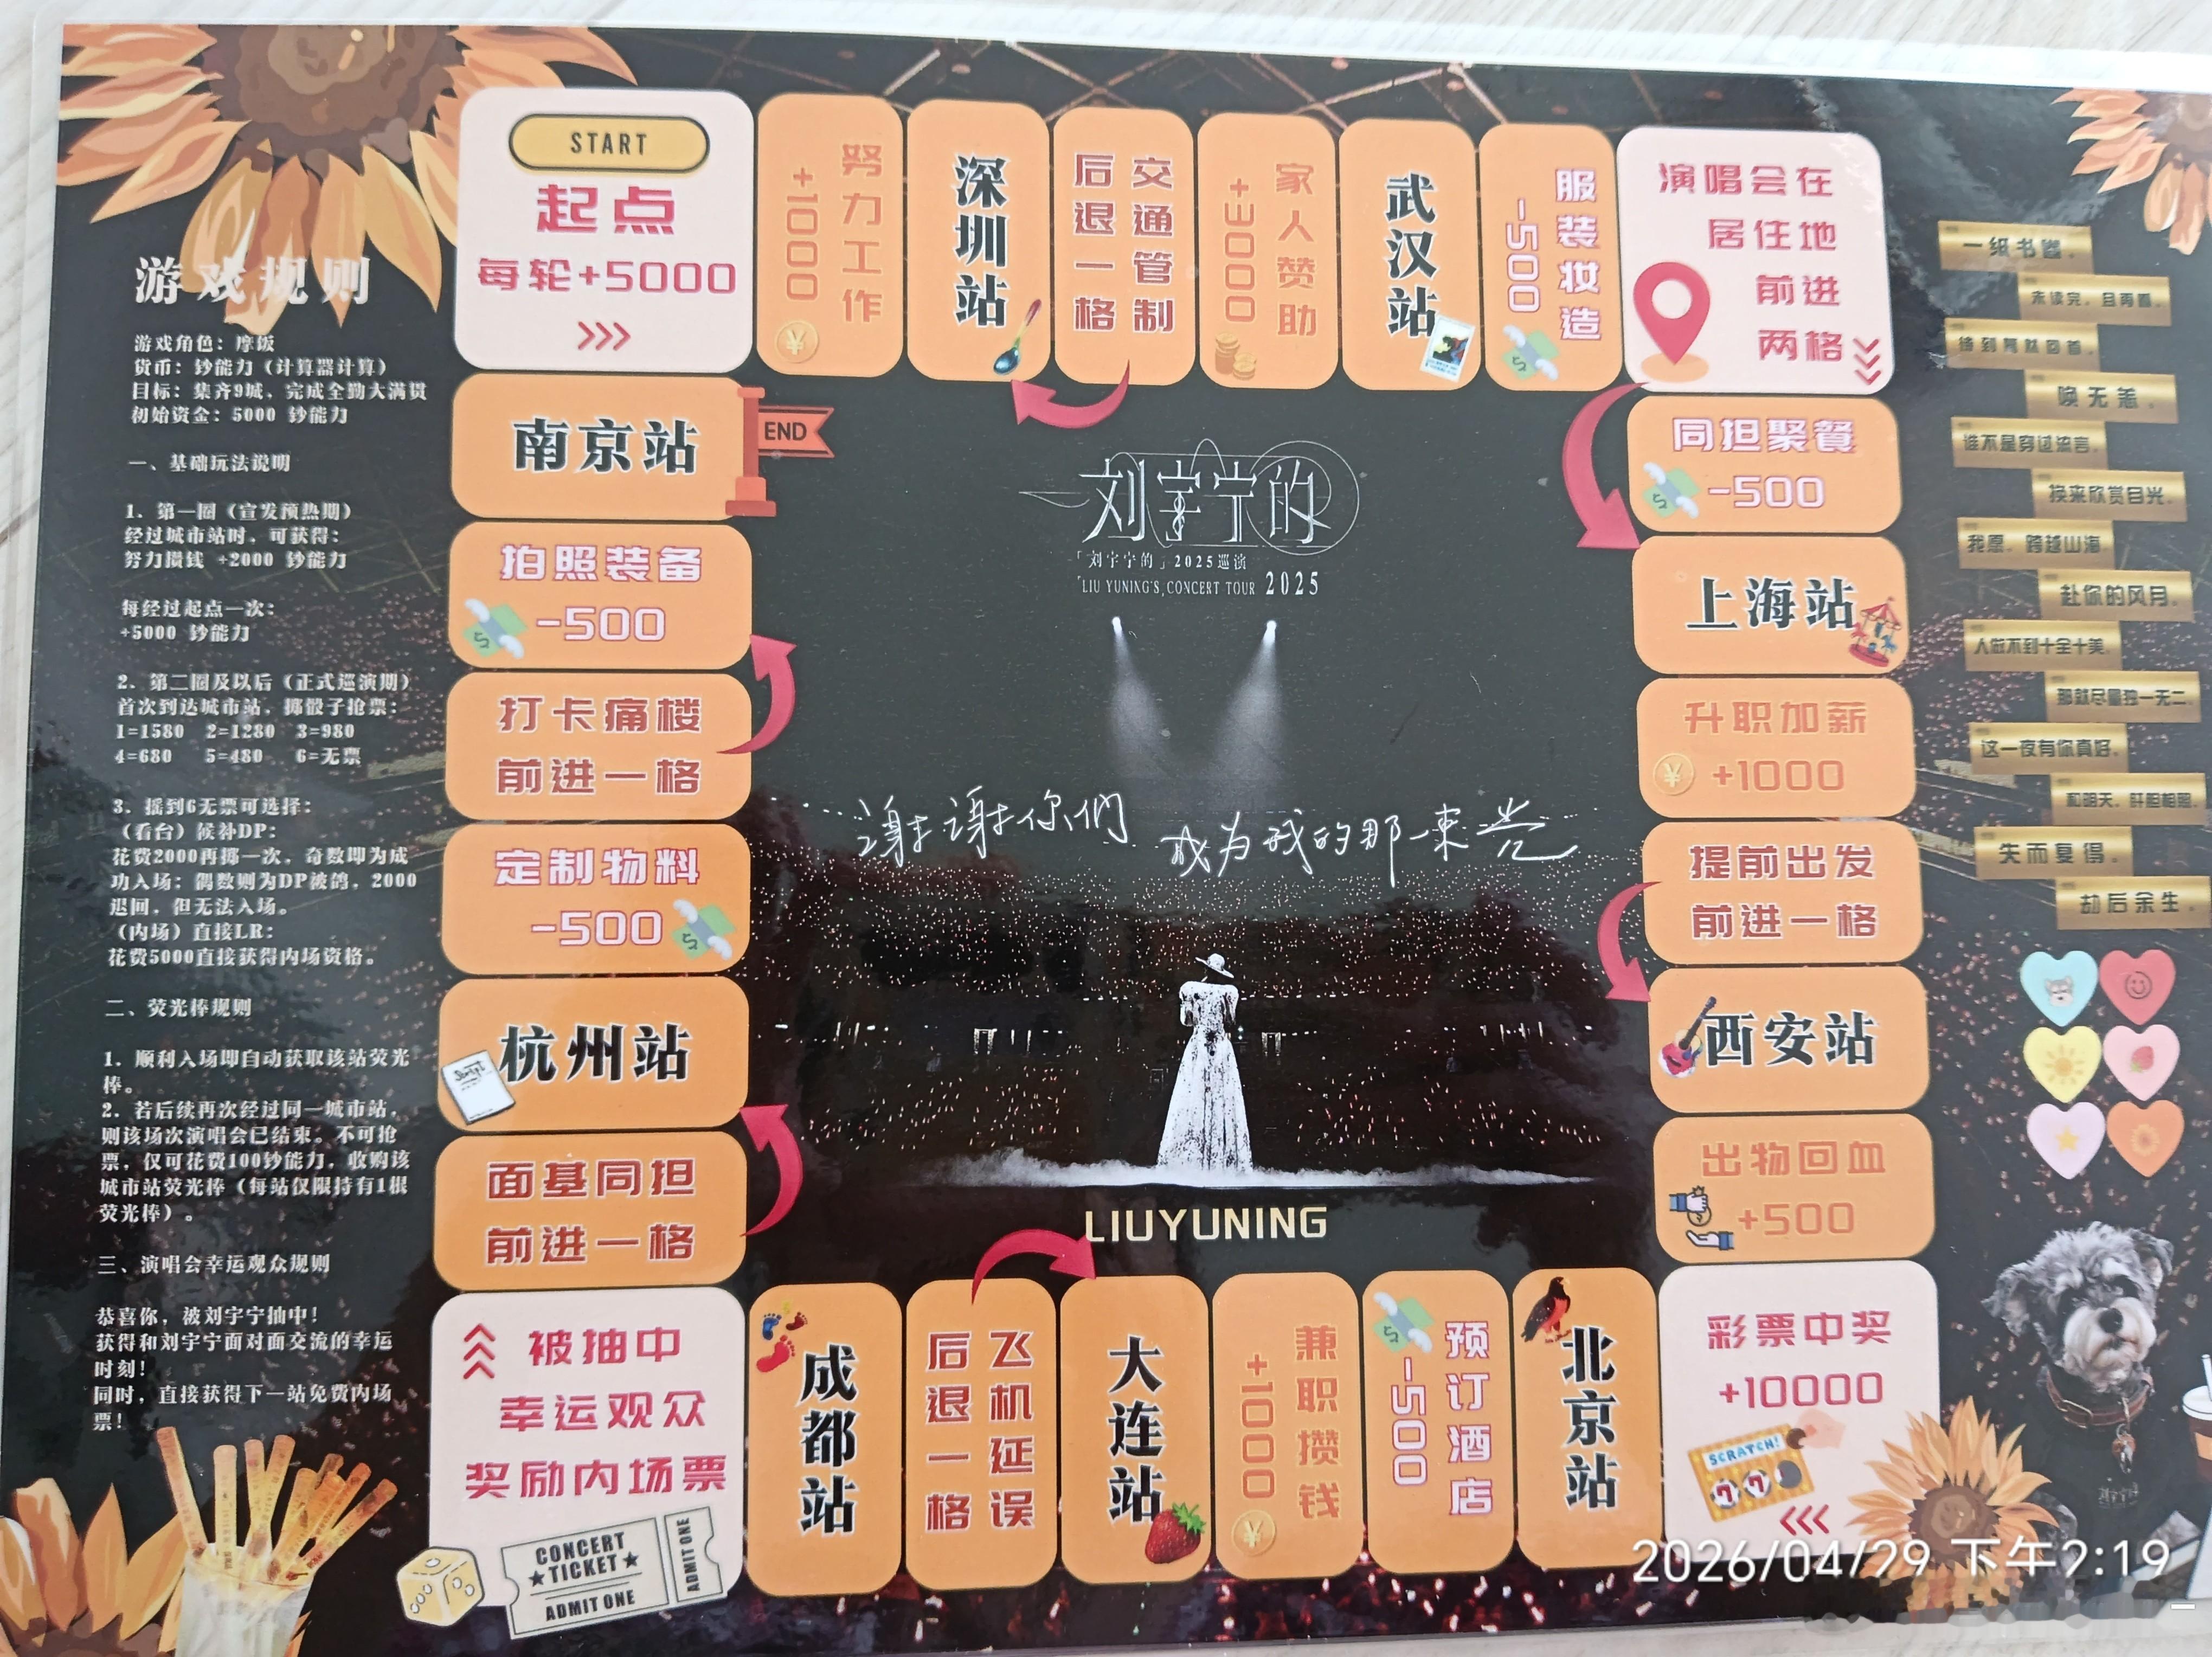 游戏规则
游戏角色：摩饭
货币：钞能力（计算器计算）
目标：集齐9城、完成全勤大满贯
初始资金：5000 钞能力
一、基础玩法说明
1. 第一圈（宣发预热期）
经过城市站时，可获得：
努力攒钱 +2000 钞能力
每经过起点一次：
+5000 钞能力
2. 第二圈及以后（正式巡演期）
首次到达城市站，掷骰子抢票：
1=1580 2=1280 3=980
4=680 5=480 6=无票
3. 摇到6无票可选择：
（看台）候补DP：
花费2000再掷一次，奇数即为成
功入场；偶数则为DP被鸽，2000
退回，但无法入场。
（内场）直接LR：
花费5000直接获得内场资格。
二、荧光棒规则
1. 顺利入场即自动获取该站荧光
棒。
2. 若后续再次经过同一城市站，
则该场次演唱会已结束。不可抢
票，仅可花费100钞能力，收购该
城市站荧光棒（每站仅限持有1根
荧光棒）。
三、演唱会幸运观众规则
恭喜你，被刘宇宁抽中！
获得和刘宇宁面对面交流的幸运
时刻！
同时，直接获得下一站免费内场
票！
START
起点
每轮+5000
>>>
努力工作
+1000
深圳站
交通管制
后退一格
家人赞助
+3000
武汉站
服装妆造
-500
演唱会在
居住地
前进
两格
同担聚餐
-500
上海站
升职加薪
+1000
提前出发
前进一格
西安站
出物回血
+500
彩票中奖
+10000
SCRATCH!
7 7
<<<
北京站
预订酒店
-500
兼职攒钱
+1000
大连站
飞机延误
后退一格
成都站
被抽中
幸运观众
奖励内场票
CONCERT
TICKET
ADMIT ONE
ADMIT ONE
面基同担
前进一格
杭州站
定制物料
-500
打卡痛楼
前进一格
拍照装备
-500
南京站
END
刘宇宁的
「刘宇宁的」2025巡演
LIU YUNING'S CONCERT TOUR 2025
谢谢你们 成为我的那一束光
LIUYUNING
一纸书卷，
未读完，且再看，
待到蓦然回首，
唤无恙，
谁不是穿过流言，
换来欣赏目光，
我愿，跨越山海，
赴你的风月，
人做不到十全十美，
那就尽量独一无二，
这一夜有你真好，
和明天，肝胆相照，
失而复得，
劫后余生，
2026/04/29 下午2:19